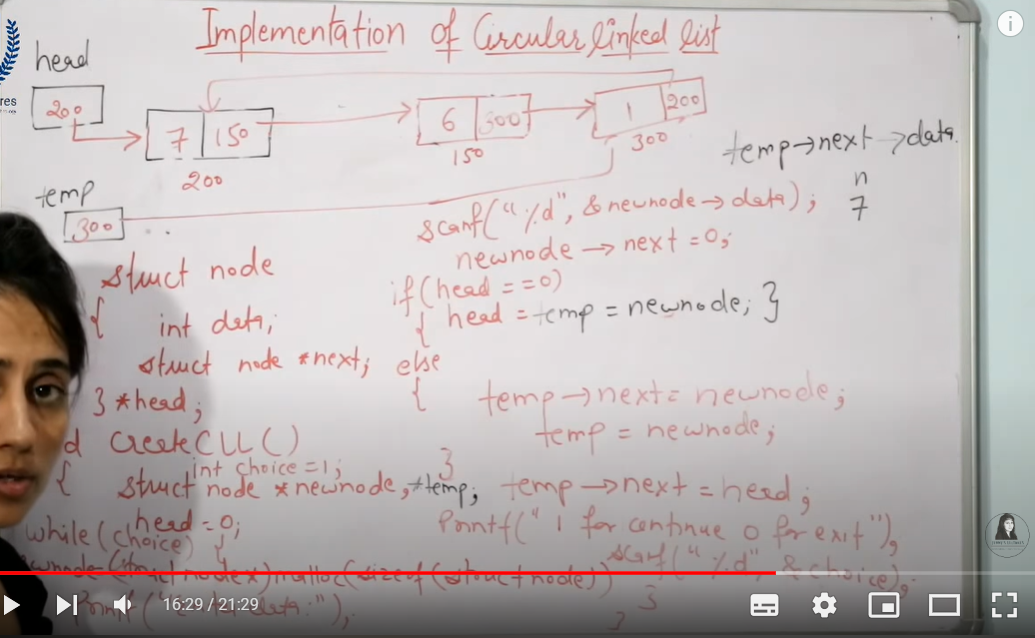 Implementation of Circular linked list
head
200
7 150
6 300
1 200
200
150
300
temp->next->data.
n
7
temp
300
struct node
{ int data;
struct node *next;
} *head;
d createCLL()
{ int choice =1;
struct node *newnode, *temp;
head =0;
while(choice)
{
(struct node*)malloc(sizeof(struct node))
printf("
scanf("%d", &newnode->data);
newnode->next =0;
if(head ==0)
{ head =temp = newnode; }
else
{ temp->next= newnode;
temp = newnode;
}
temp->next = head;
Printf(" 1 for continue 0 for exit");
scanf("%d", &choice);
}
}
res
16:29 / 21:29